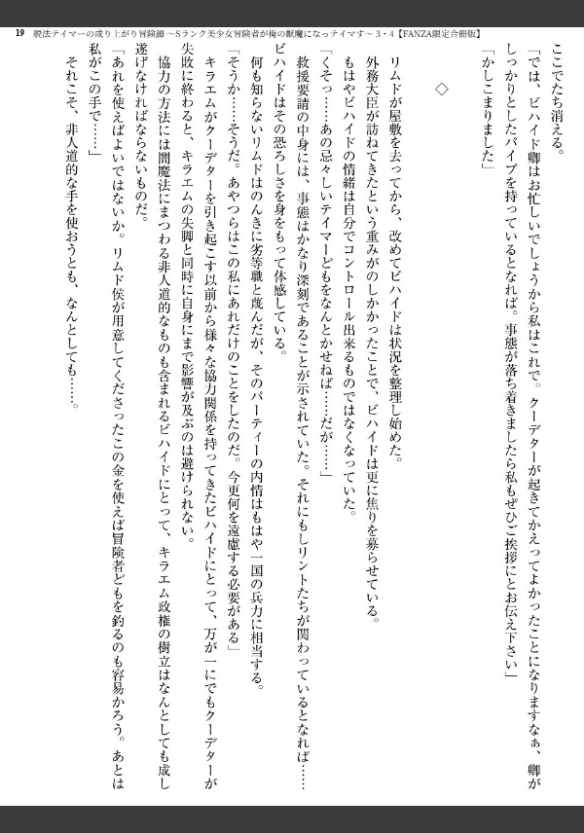 19 脱法テイマーの成り上がり冒険譚 ～Sランク美少女冒険者が俺の獣魔になっテイマす～ 3・4【FANZA限定合冊版】
ここでたち消える。
「では、ビハイド卿はお忙しいでしょうから私はこれで。クーデターが起きてかえってよかったことになりますなぁ、卿が
しっかりとしたパイプを持っているとなれば。事態が落ち着きましたら私もぜひご挨拶にとお伝え下さい」
「かしこまりました」
◇
リムドが屋敷を去ってから、改めてビハイドは状況を整理し始めた。
外務大臣が訪ねてきたという重みがのしかかったことで、ビハイドは更に焦りを募らせている。
もはやビハイドの情緒は自分でコントロール出来るものではなくなっていた。
「くそっ……あの忌々しいテイマーどもをなんとかせねば……だが……」
救援要請の中身には、事態はかなり深刻であることが示されていた。それにもしリントたちが関わっているとなれば……
ビハイドはその恐ろしさを身をもって体感している。
何も知らないリムドはのんきに劣等職と蔑んだが、そのパーティーの内情はもはや一国の兵力に相当する。
「そうか……そうだ。あやつらはこの私にあれだけのことをしたのだ。今更何を遠慮する必要がある」
キラエムがクーデターを引き起こす以前から様々な協力関係を持ってきたビハイドにとって、万が一にでもクーデターが
失敗に終わると、キラエムの失脚と同時に自身にまで影響が及ぶのは避けられない。
協力の方法には闇魔法にまつわる非人道的なものも含まれるビハイドにとって、キラエム政権の樹立はなんとしても成し
遂げなければならないものだ。
「あれを使えばよいではないか。リムド侯が用意してくださったこの金を使えば冒険者どもを釣るのも容易かろう。あとは
私がこの手で……」
それこそ、非人道的な手を使おうとも、なんとしても……。